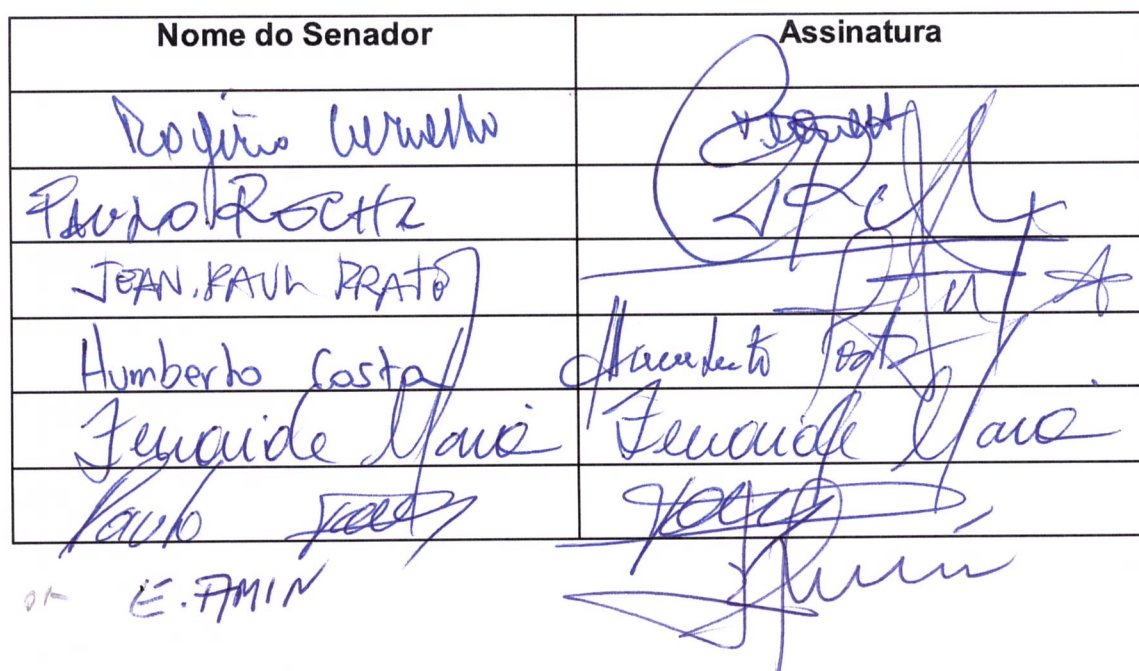 Nome do Senador Assinatura
Rogério Carvalho
PAULO ROCHA
JEAN.PAUL PRATO
Humberto Costa Humberto Costa
Zenaide Maia Zenaide Maia
Paulo
E. AMIN